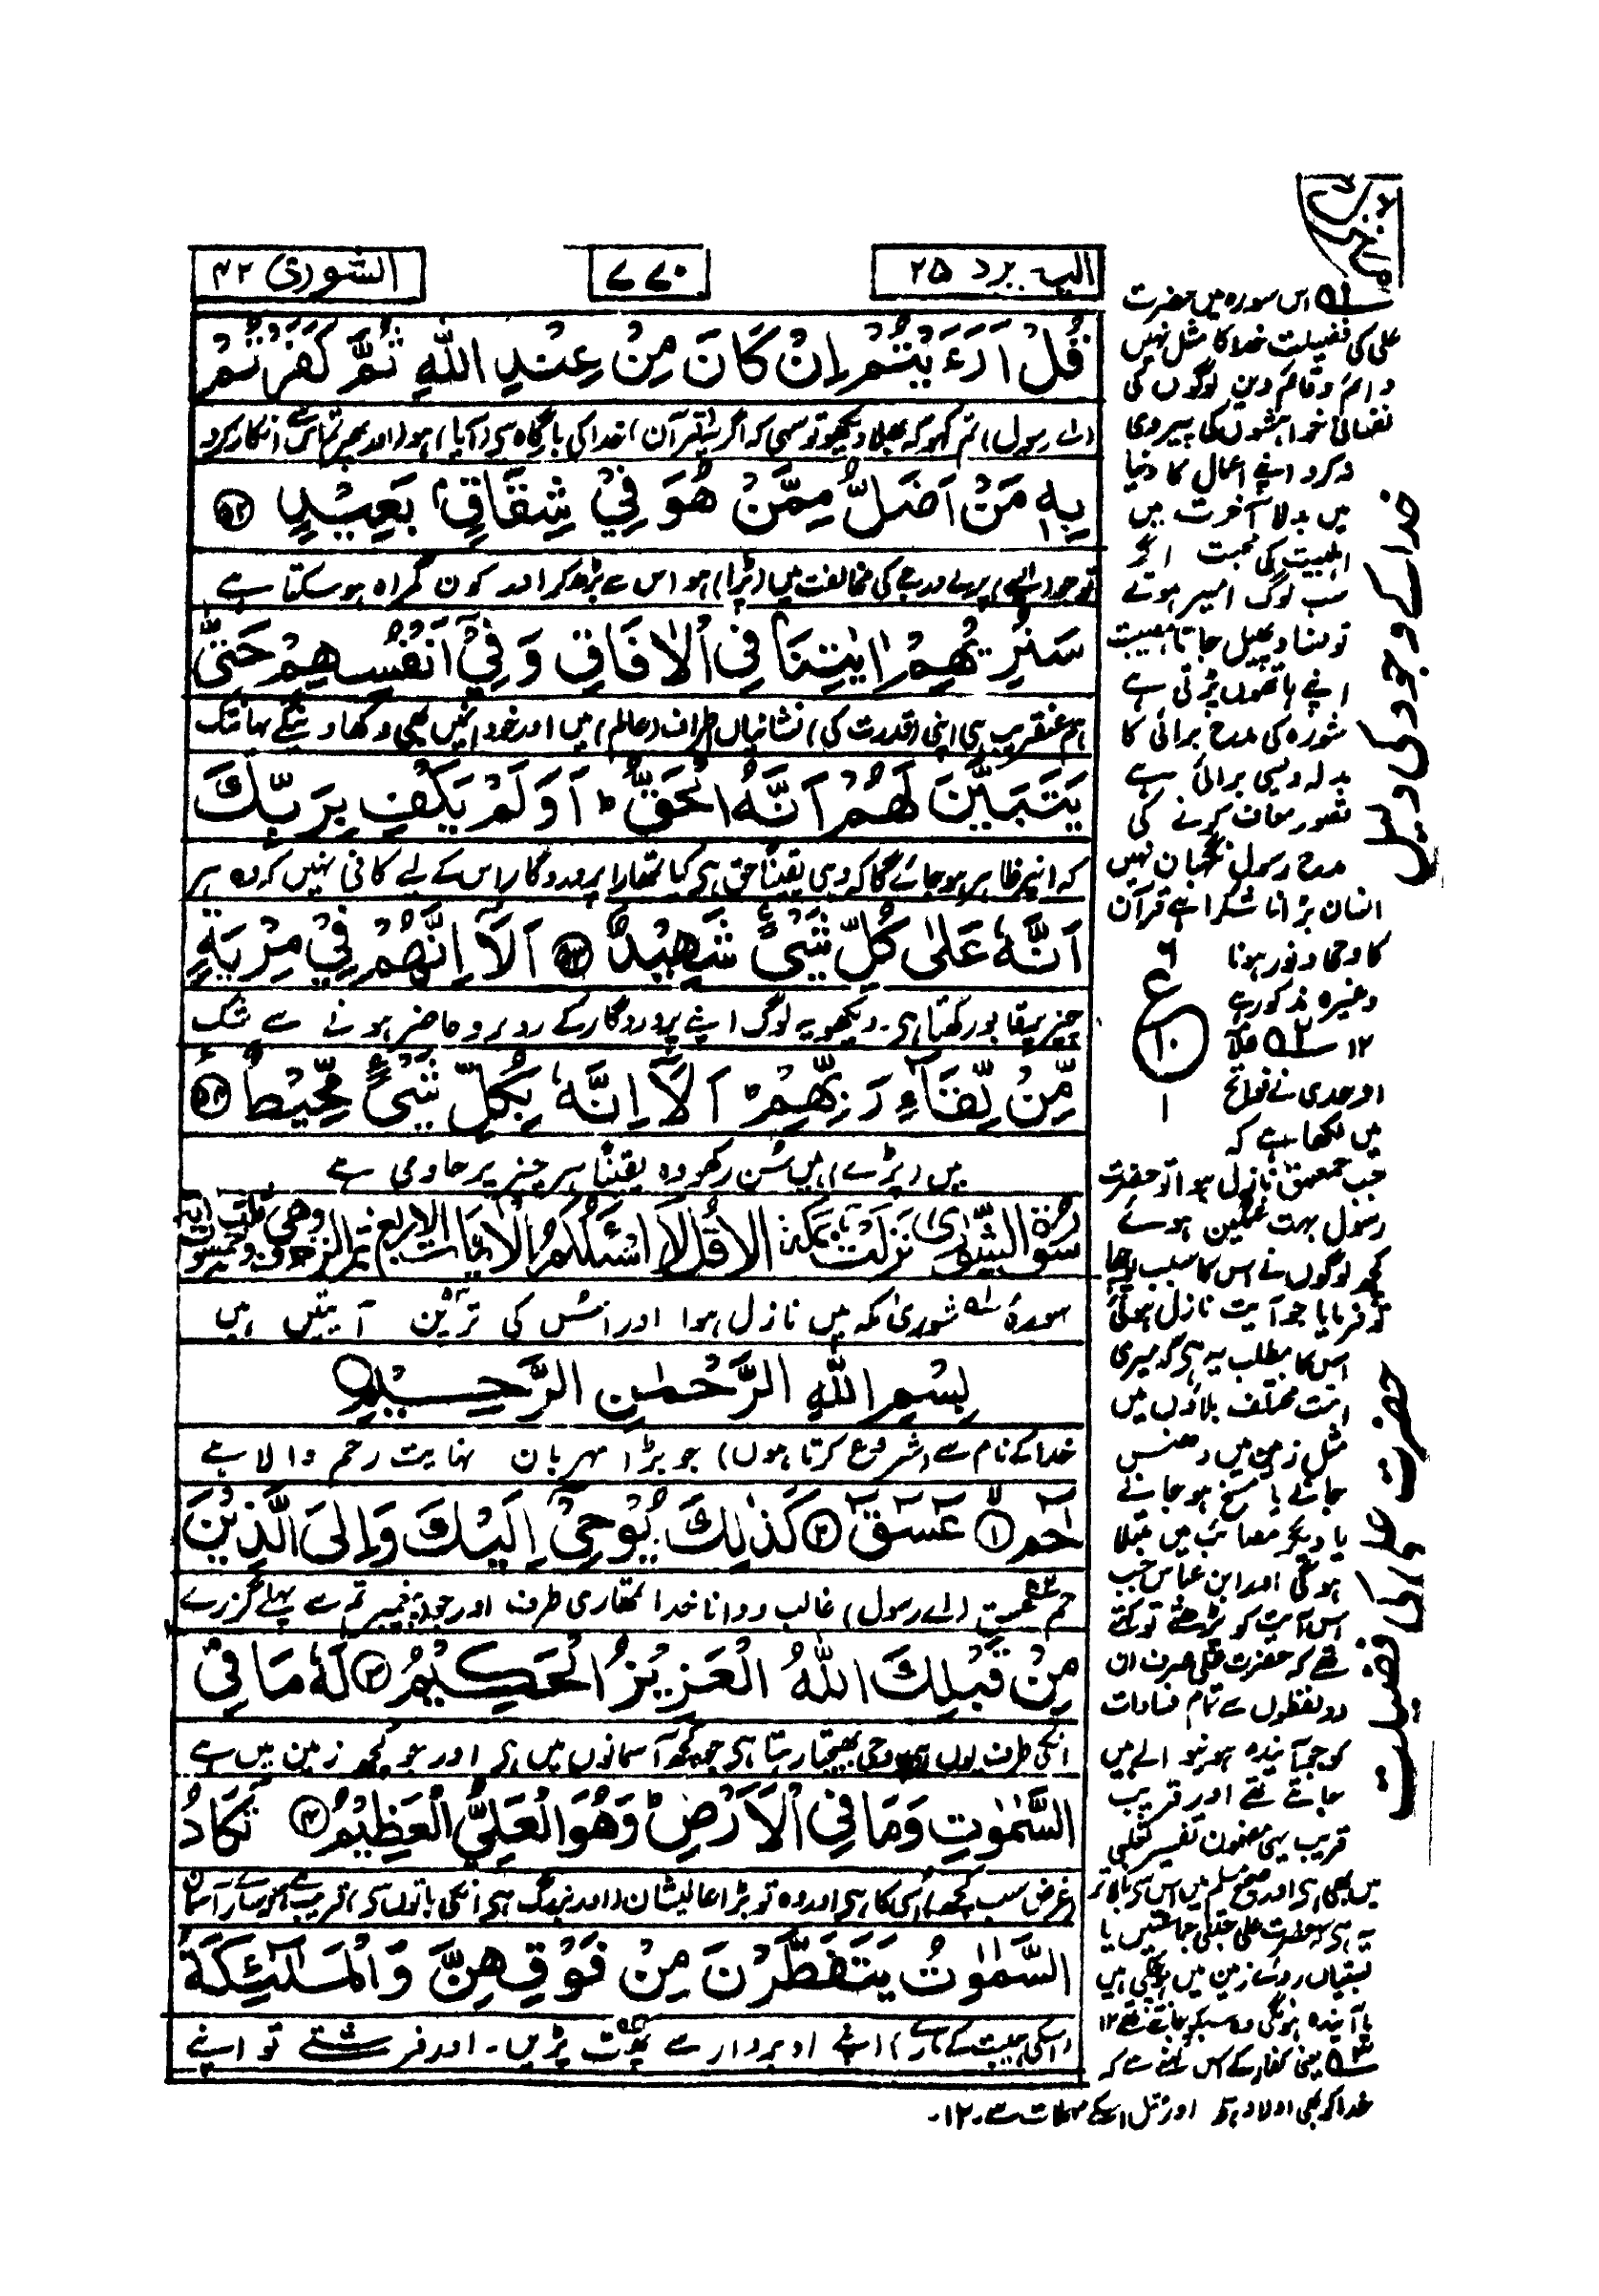 الیہ یرد ۲۵
۷۷۰
الشوریٰ ۴۲
قُلْ اَرَءَیْتُمْ اِنْ كَانَ مِنْ عِنْدِ اللّٰهِ ثُمَّ كَفَرْتُمْ
(اے رسول) تم کہو کہ بھلا دیکھو تو سہی کہ اگر یہ (قرآن) خدا کی بارگاہ سے (آیا) ہو اور پھر تم اس سے انکار کرو
بِهٖ مَنْ اَضَلُّ مِمَّنْ هُوَ فِیْ شِقَاقٍۭ بَعِیْدٍ ﴿۵۲﴾
تو جو (ایسے) پرلے درجے کی مخالفت میں (پڑا) ہو اس سے بڑھ کر اور کون گمراہ ہو سکتا ہے
سَنُرِیْهِمْ اٰیٰتِنَا فِی الْاٰفَاقِ وَ فِیْۤ اَنْفُسِهِمْ حَتّٰى
ہم عنقریب ہی اپنی (قدرت کی) نشانیاں اطراف (عالم) میں اور خود انہیں بھی دکھا دینگے یہانتک
یَتَبَیَّنَ لَهُمْ اَنَّهُ الْحَقُّ ؕ اَوَ لَمْ یَكْفِ بِرَبِّكَ
کہ انپر ظاہر ہو جائے گا کہ وہی یقیناً حق ہے کیا تمھارا پروردگار اس کے لیے کافی نہیں کہ وہ ہر
اَنَّهٗ عَلٰى كُلِّ شَیْءٍ شَهِیْدٌ ﴿۵۳﴾ اَلَاۤ اِنَّهُمْ فِیْ مِرْیَةٍ
چیز پر قابو رکھتا ہے۔ دیکھو یہ لوگ اپنے پروردگار کے روبرو حاضر ہونے سے شک
مِّنْ لِّقَآءِ رَبِّهِمْ ؕ اَلَاۤ اِنَّهٗ بِكُلِّ شَیْءٍ مُّحِیْطٌ ﴿۵۴﴾
میں (پڑے) ہیں سُن رکھو وہ یقیناً ہر چیز پر حاوی ہے
سورۃ الشوریٰ نزلت بمکۃ الا قل لا اسئلکم الآیات الاربع ثم الزخرف وھی ثلث و خمسون آیۃ
سورۂ شوریٰ مکہ میں نازل ہوا اور اسُس کی ترپّن آیتیں ہیں
بِسْمِ اللّٰهِ الرَّحْمٰنِ الرَّحِیْمِ
خدا کے نام سے (شروع کرتا ہوں) جو بڑا مہربان نہایت رحم والا ہے
حٰمٓ ﴿۱﴾ عٓسٓقٓ ﴿۲﴾ كَذٰلِكَ یُوْحِیْۤ اِلَیْكَ وَ اِلَى الَّذِیْنَ
حم عسق (اے رسول) غالب و دانا خدا تمھاری طرف اور جو پیغمبر تم سے پہلے گزرے
مِنْ قَبْلِكَ اللّٰهُ الْعَزِیْزُ الْحَكِیْمُ ﴿۳﴾ لَهٗ مَا فِی
انکی طرف یوں ہی وحی بھیجتا رہتا ہے جو کچھ آسمانوں میں ہے اور جو کچھ زمین میں ہے
السَّمٰوٰتِ وَ مَا فِی الْاَرْضِ ؕ وَ هُوَ الْعَلِیُّ الْعَظِیْمُ ﴿۴﴾ تَكَادُ
(غرض سب کچھ) اُسی کا ہے اور وہ تو بڑا عالیشان (اور بزرگ) ہے انکی باتوں سے قریب ہے کہ سارے آسمان
السَّمٰوٰتُ یَتَفَطَّرْنَ مِنْ فَوْقِهِنَّ وَ الْمَلٰٓىِٕكَةُ
(اسکی ہیبت کے مارے) اپنے اوپر وار سے پھٹ پڑیں۔ اور فرشتے تو اپنے
اس سورہ میں حضرت
علی کی فضیلت خدا کا مثل نہیں
دائم و قائم دین لوگوں کی
نفسانی خواہشوں کی پیروی
نہ کرو اپنے اعمال کا دنیا
میں بدلا آخرت میں
اہلبیت کی محبت اگر
سب لوگ امیر ہوتے
تو فساد پھیل جاتا مصیبت
اپنے ہاتھوں پڑتی ہے
شورہ کی مدح برائی کا
بدلہ ویسی برائی ہے
قصور معاف کرنے کی
مدح رسول نگہبان نہیں
انسان بڑا ناشکرا ہے قرآن
کا وحی و نور ہونا
وغیرہ مذکور ہے
۱۲
ع
۱۰
۱
میں لکھا ہے کہ
جب حمعسق نازل ہوا تو حضرت
رسول بہت غمگین ہوئے
کچھ لوگوں نے اس کا سبب پوچھا
تو فرمایا جو آیت نازل ہوئی
اس کا مطلب یہ ہے کہ میری
امت مختلف بلاؤں میں
مثل زمین میں دھنس
جانے یا مسخ ہو جانے
یا دیگر مصائب میں مبتلا
ہوگی اور ابن عباس جب
اس آیت کو پڑھتے تو کہتے
تھے کہ حضرت علی صرف ان
دو لفظوں سے تمام فسادات
کو جو آیندہ ہونیوالے ہیں
جانتے تھے اور قریب
قریب یہی مضمون تفسیر ثعلبی
میں بھی ہے اور صحیح مسلم میں اس سے بالاتر
بستیاں روئے زمین میں ہو چکی ہیں
یا آیندہ ہونگی وہ سب کو جانتے تھے ۱۲
یعنی کفار کے اس کہنے سے کہ
خدا کو بھی اولاد ہے اور مثل اسکے
خدا کے وجود کی دلیل
حضرت علی کی فضیلت